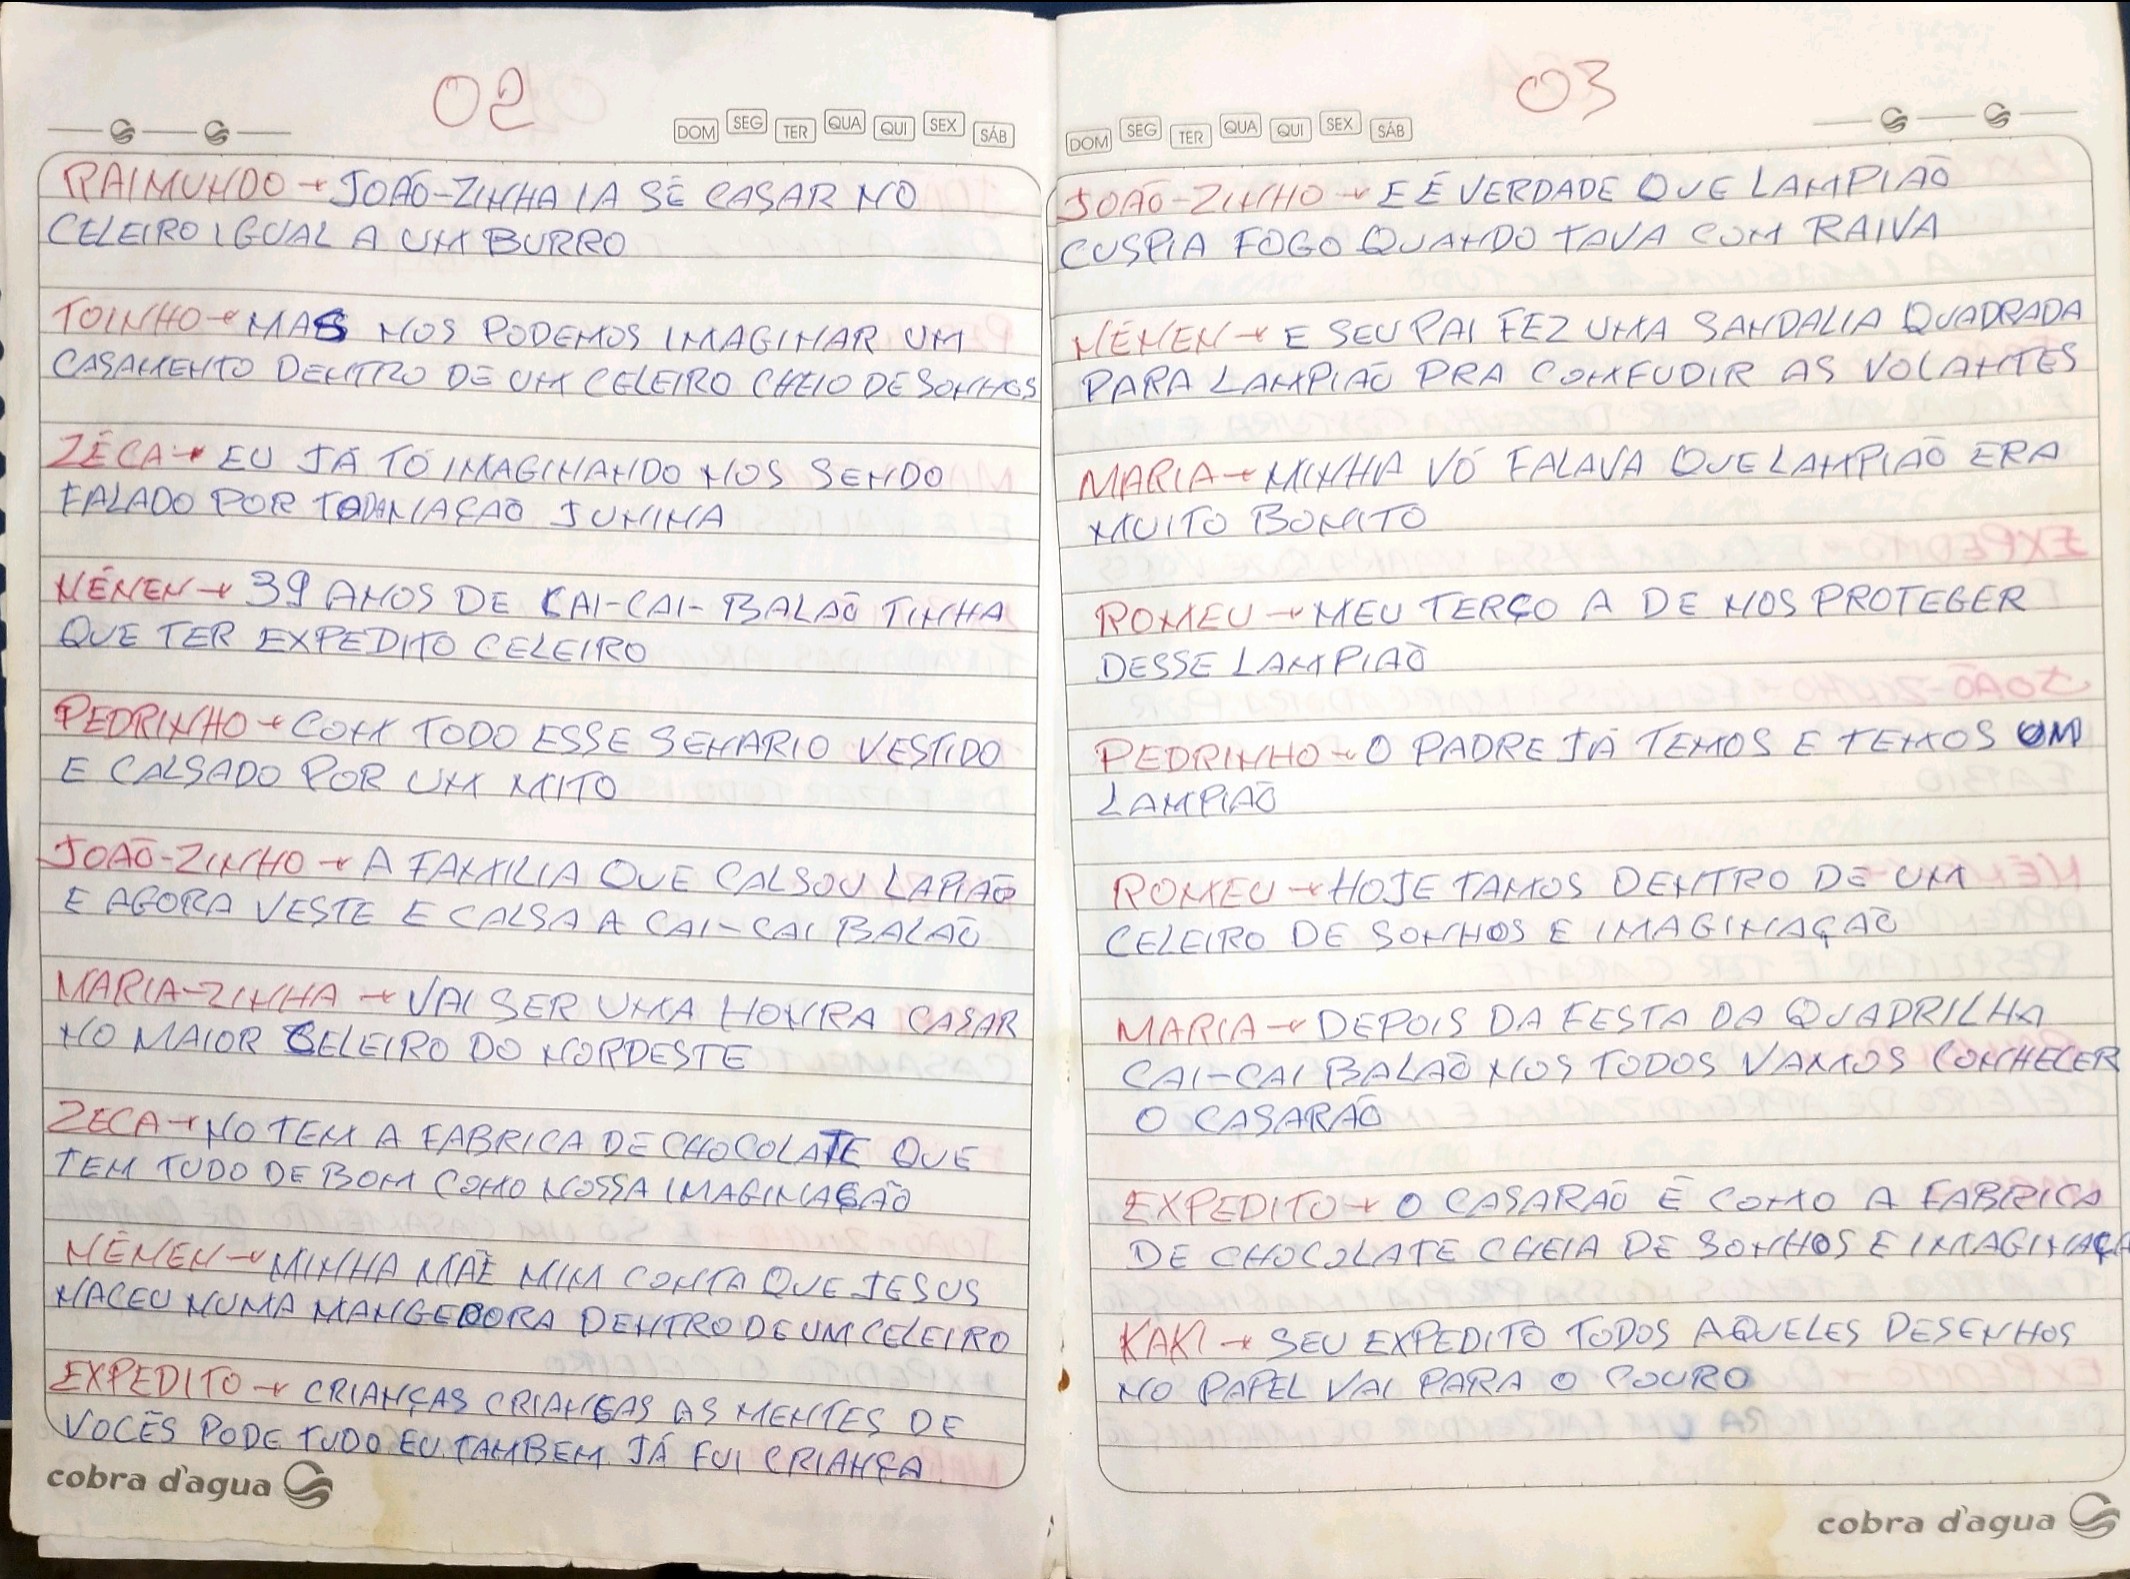 02
DOM SEG TER QUA QUI SEX SÁB
RAIMUNDO → JOAÕ-ZINHA IA SE CASAR NO
CELEIRO IGUAL A UM BURRO
TOINHO → MAS NOS PODEMOS IMAGINAR UM
CASAMENTO DENTRO DE UM CELEIRO CHEIO DE SONHOS
ZÉCA → EU JÁ TÔ IMAGINANDO NOS SENDO
FALADO POR TODA NAÇAÕ JUNINA
NÉNEN → 39 ANOS DE CAI-CAI-BALAÕ TINHA
QUE TER EXPEDITO CELEIRO
PEDRINHO → COM TODO ESSE SENARIO VESTIDO
E CALSADO POR UM MITO
JOAÕ-ZINHO → A FAMILIA QUE CALSOU LAPIAÕ
E AGORA VESTE E CALSA A CAI-CAI BALAÕ
MARIA-ZINHA → VAI SER UMA HONRA CASAR
NO MAIOR CELEIRO DO NORDESTE
ZECA → NO TEM A FABRICA DE CHOCOLATE QUE
TEM TUDO DE BOM COMO NOSSA IMAGINAÇÃO
NÉNEN → MINHA MAẼ MIM CONTA QUE JESUS
NACEU NUMA MANGEDORA DENTRO DE UM CELEIRO
EXPEDITO → CRIANÇAS CRIANÇAS AS MENTES DE
VOCÊS PODE TUDO EU TAMBEM JÁ FUI CRIANÇA
cobra d'agua
03
DOM SEG TER QUA QUI SEX SÁB
JOAÕ-ZINHO → E É VERDADE QUE LAMPIAÕ
CUSPIA FOGO QUANDO TAVA COM RAIVA
NÉNEN → E SEU PAI FEZ UMA SANDALIA QUADRADA
PARA LAMPIAÕ PRA CONFUDIR AS VOLANTES
MARIA → MINHA VÓ FALAVA QUE LAMPIAÕ ERA
MUITO BONITO
ROMEU → MEU TERÇO A DE NOS PROTEGER
DESSE LAMPIAÕ
PEDRINHO → O PADRE JÁ TEMOS E TEMOS UM
LAMPIAÕ
ROMEU → HOJE TAMOS DENTRO DE UM
CELEIRO DE SONHOS E IMAGINAÇAÕ
MARIA → DEPOIS DA FESTA DA QUADRILHA
CAI-CAI BALAÕ NOS TODOS VAMOS CONHECER
O CASARAÕ
EXPEDITO → O CASARAÕ É COMO A FABRICA
DE CHOCOLATE CHEIA DE SONHOS E
KAKI → SEU EXPEDITO TODOS AQUELES DESENHOS
NO PAPEL VAI PARA O COURO
cobra d'agua